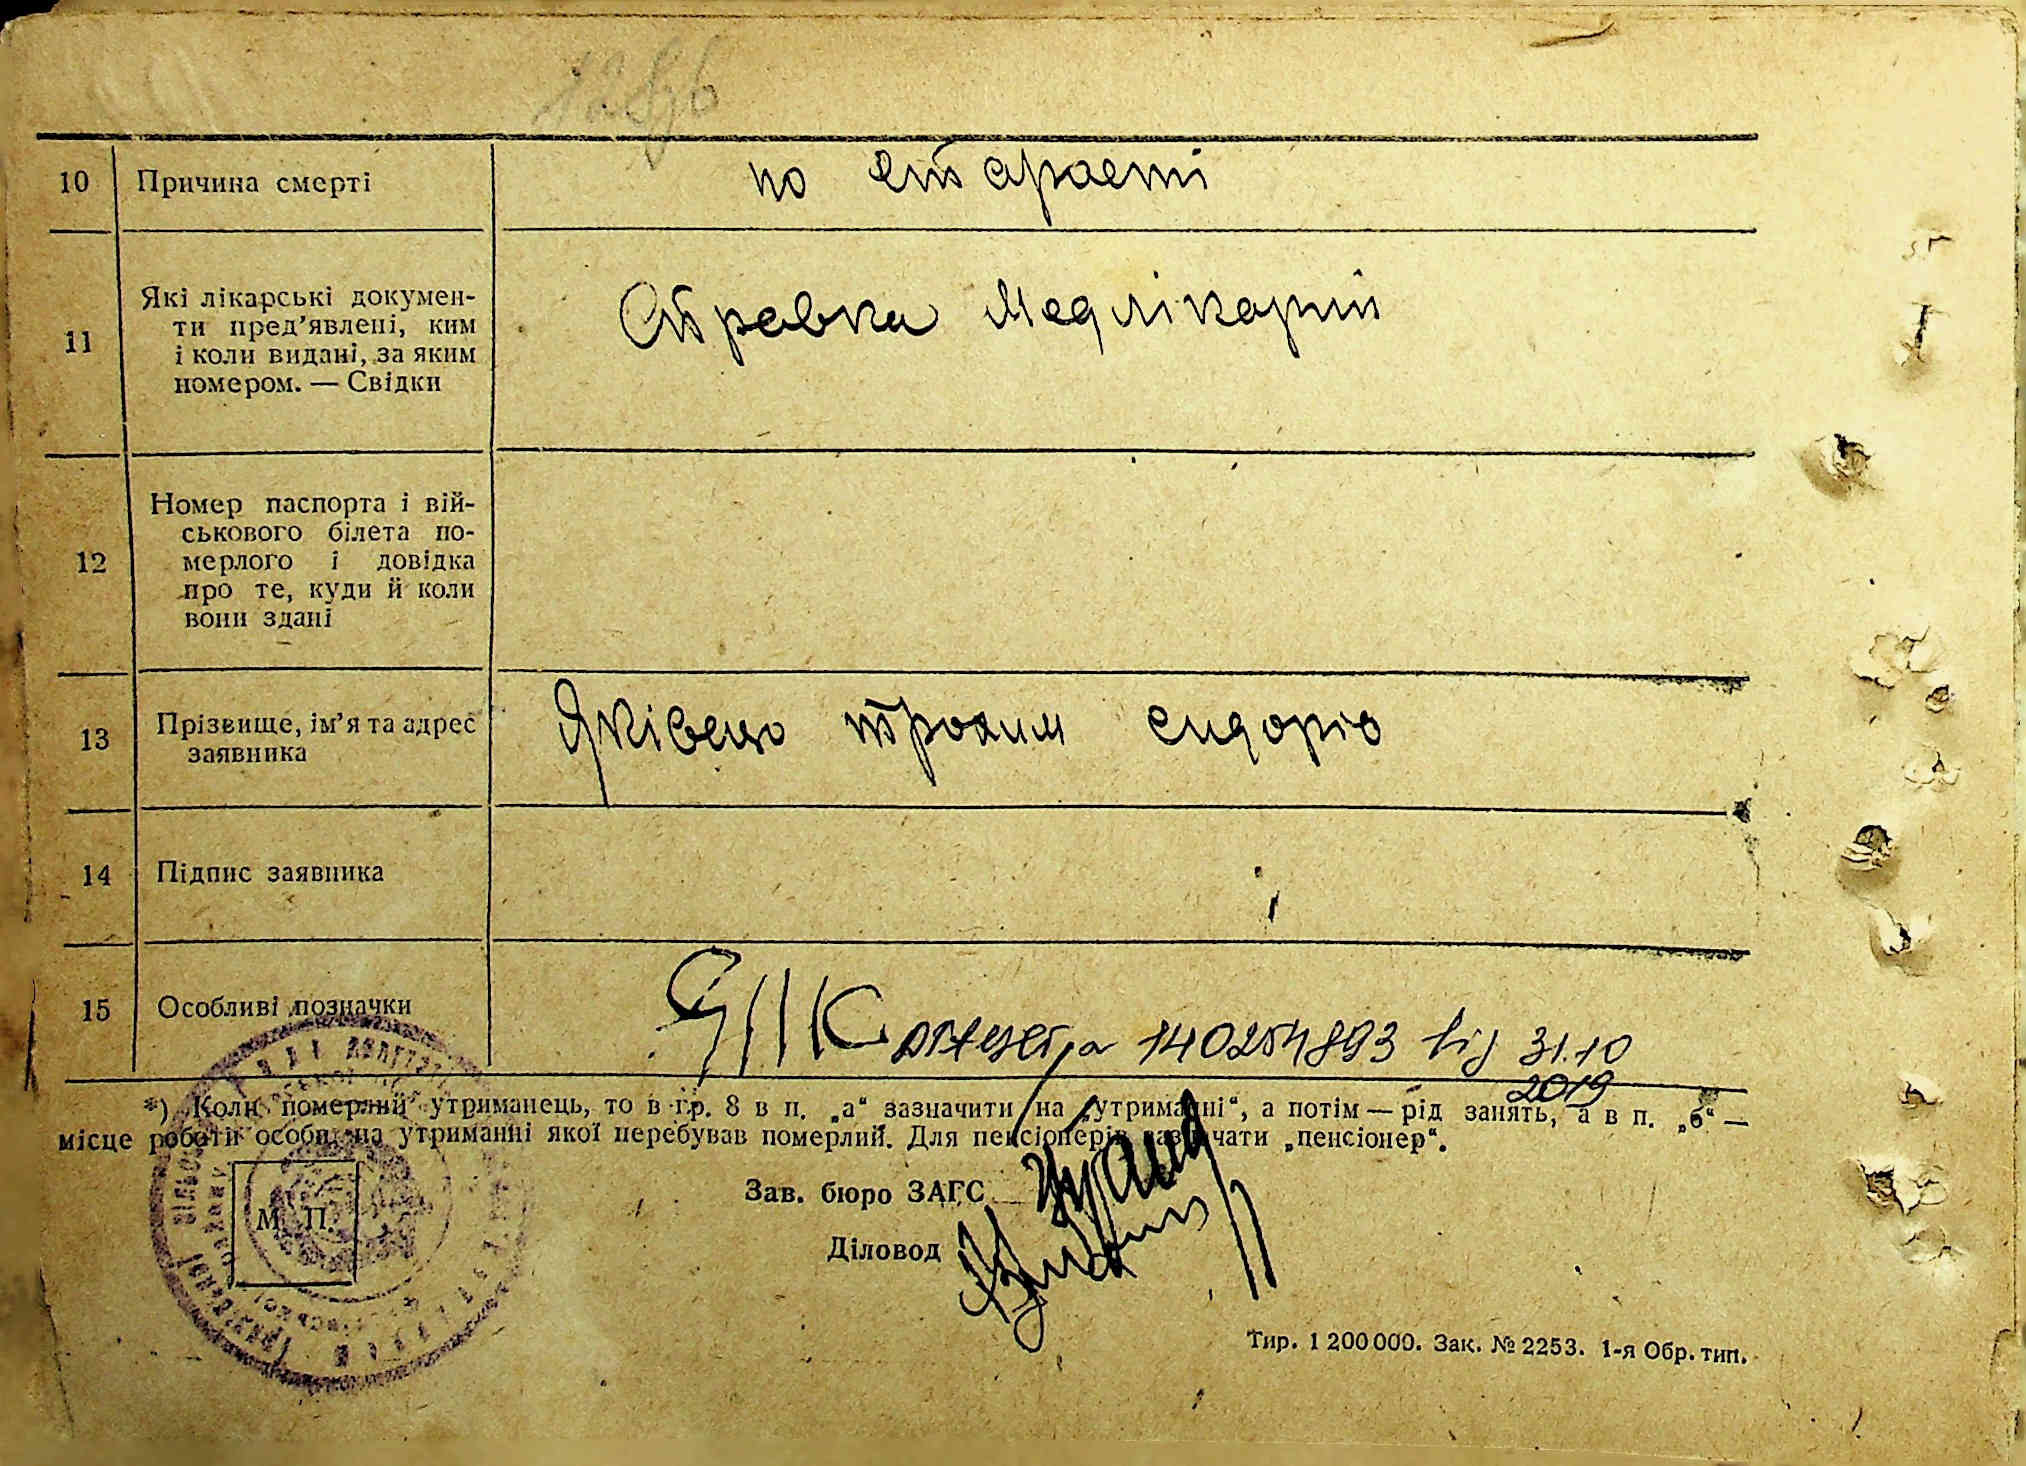 10 Причина смерті по старасті
11 Які лікарські докумен-
ти пред’явлені, ким
і коли видані, за яким
номером. — Свідки
Справка
12 Номер паспорта і вій-
ськового білета по-
мерлого і довідка
про те, куди й коли
вони здані
13 Прізвище, ім’я та адрес
заявника
Яківець трохим сидоріо
14 Підпис заявника
15 Особливі позначки
140254893 від 31.10
2019
*) Коли померлий утриманець, то в гр. 8 в п. „а“ зазначити на „утриманні“, а потім — рід занять, а в п. „б“ —
місце роботи особи, на утриманні якої перебував померлий. Для пенсіонерів зазначати „пенсіонер“.
Зав. бюро ЗАГС
М. П.
Діловод
Тир. 1 200 000. Зак. № 2253. 1-я Обр. тип.